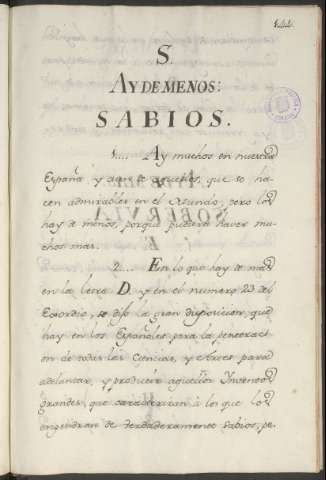 144.
S.
AY DE MENOS:
SABIOS.
1.... Ay muchos en nuestra
España y aun de aquellos, que se ha-
cen admirables en el Mundo, pero los
hay de menos, porque pudiera haver mu-
chos mas.
2.... En lo que hay de mas
en la letra D. y en el numero 23 del
Exordio, se dijo la gran disposicion, que
hay en los Españoles para la penetraci-
on de todas las Ciencias, y Artes para
adelantar, y producir aquellos Ingenios
grandes, que caracterizan à los que los
engendran de verdaderamente Sabios, pe-